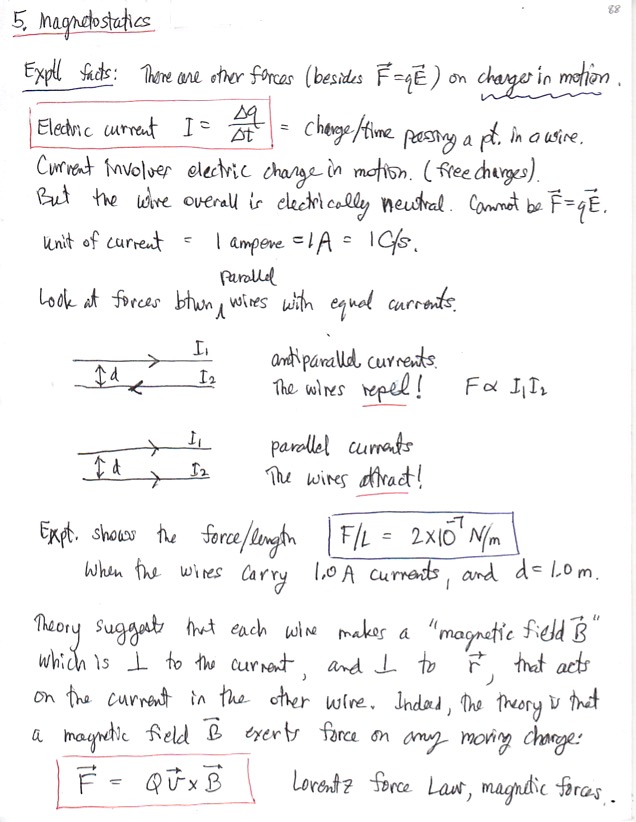 88
5. Magnetostatics
Exptl facts: There are other forces (besides F⃗ = qE⃗) on charges in motion.
Electric current I = Δq/Δt = charge/time passing a pt. in a wire.
Current involves electric charge in motion. (free charges).
But the wire overall is electrically neutral. Cannot be F⃗ = qE⃗.
unit of current = 1 ampere = 1A = 1 C/s.
Look at forces btwn parallel wires with equal currents.
I₁ antiparallel currents.
↕d I₂ The wires repel! F ∝ I₁I₂
I₁ parallel currents
↕d I₂ The wires attract!
Expt. shows the force/length F/L = 2×10⁻⁷ N/m
When the wires carry 1.0 A currents, and d = 1.0 m.
Theory suggests that each wire makes a "magnetic field B⃗"
which is ⊥ to the current, and ⊥ to r⃗, that acts
on the current in the other wire. Indeed, the theory is that
a magnetic field B⃗ exerts force on any moving charge:
F⃗ = Qv⃗ × B⃗ Lorentz force Law, magnetic forces.